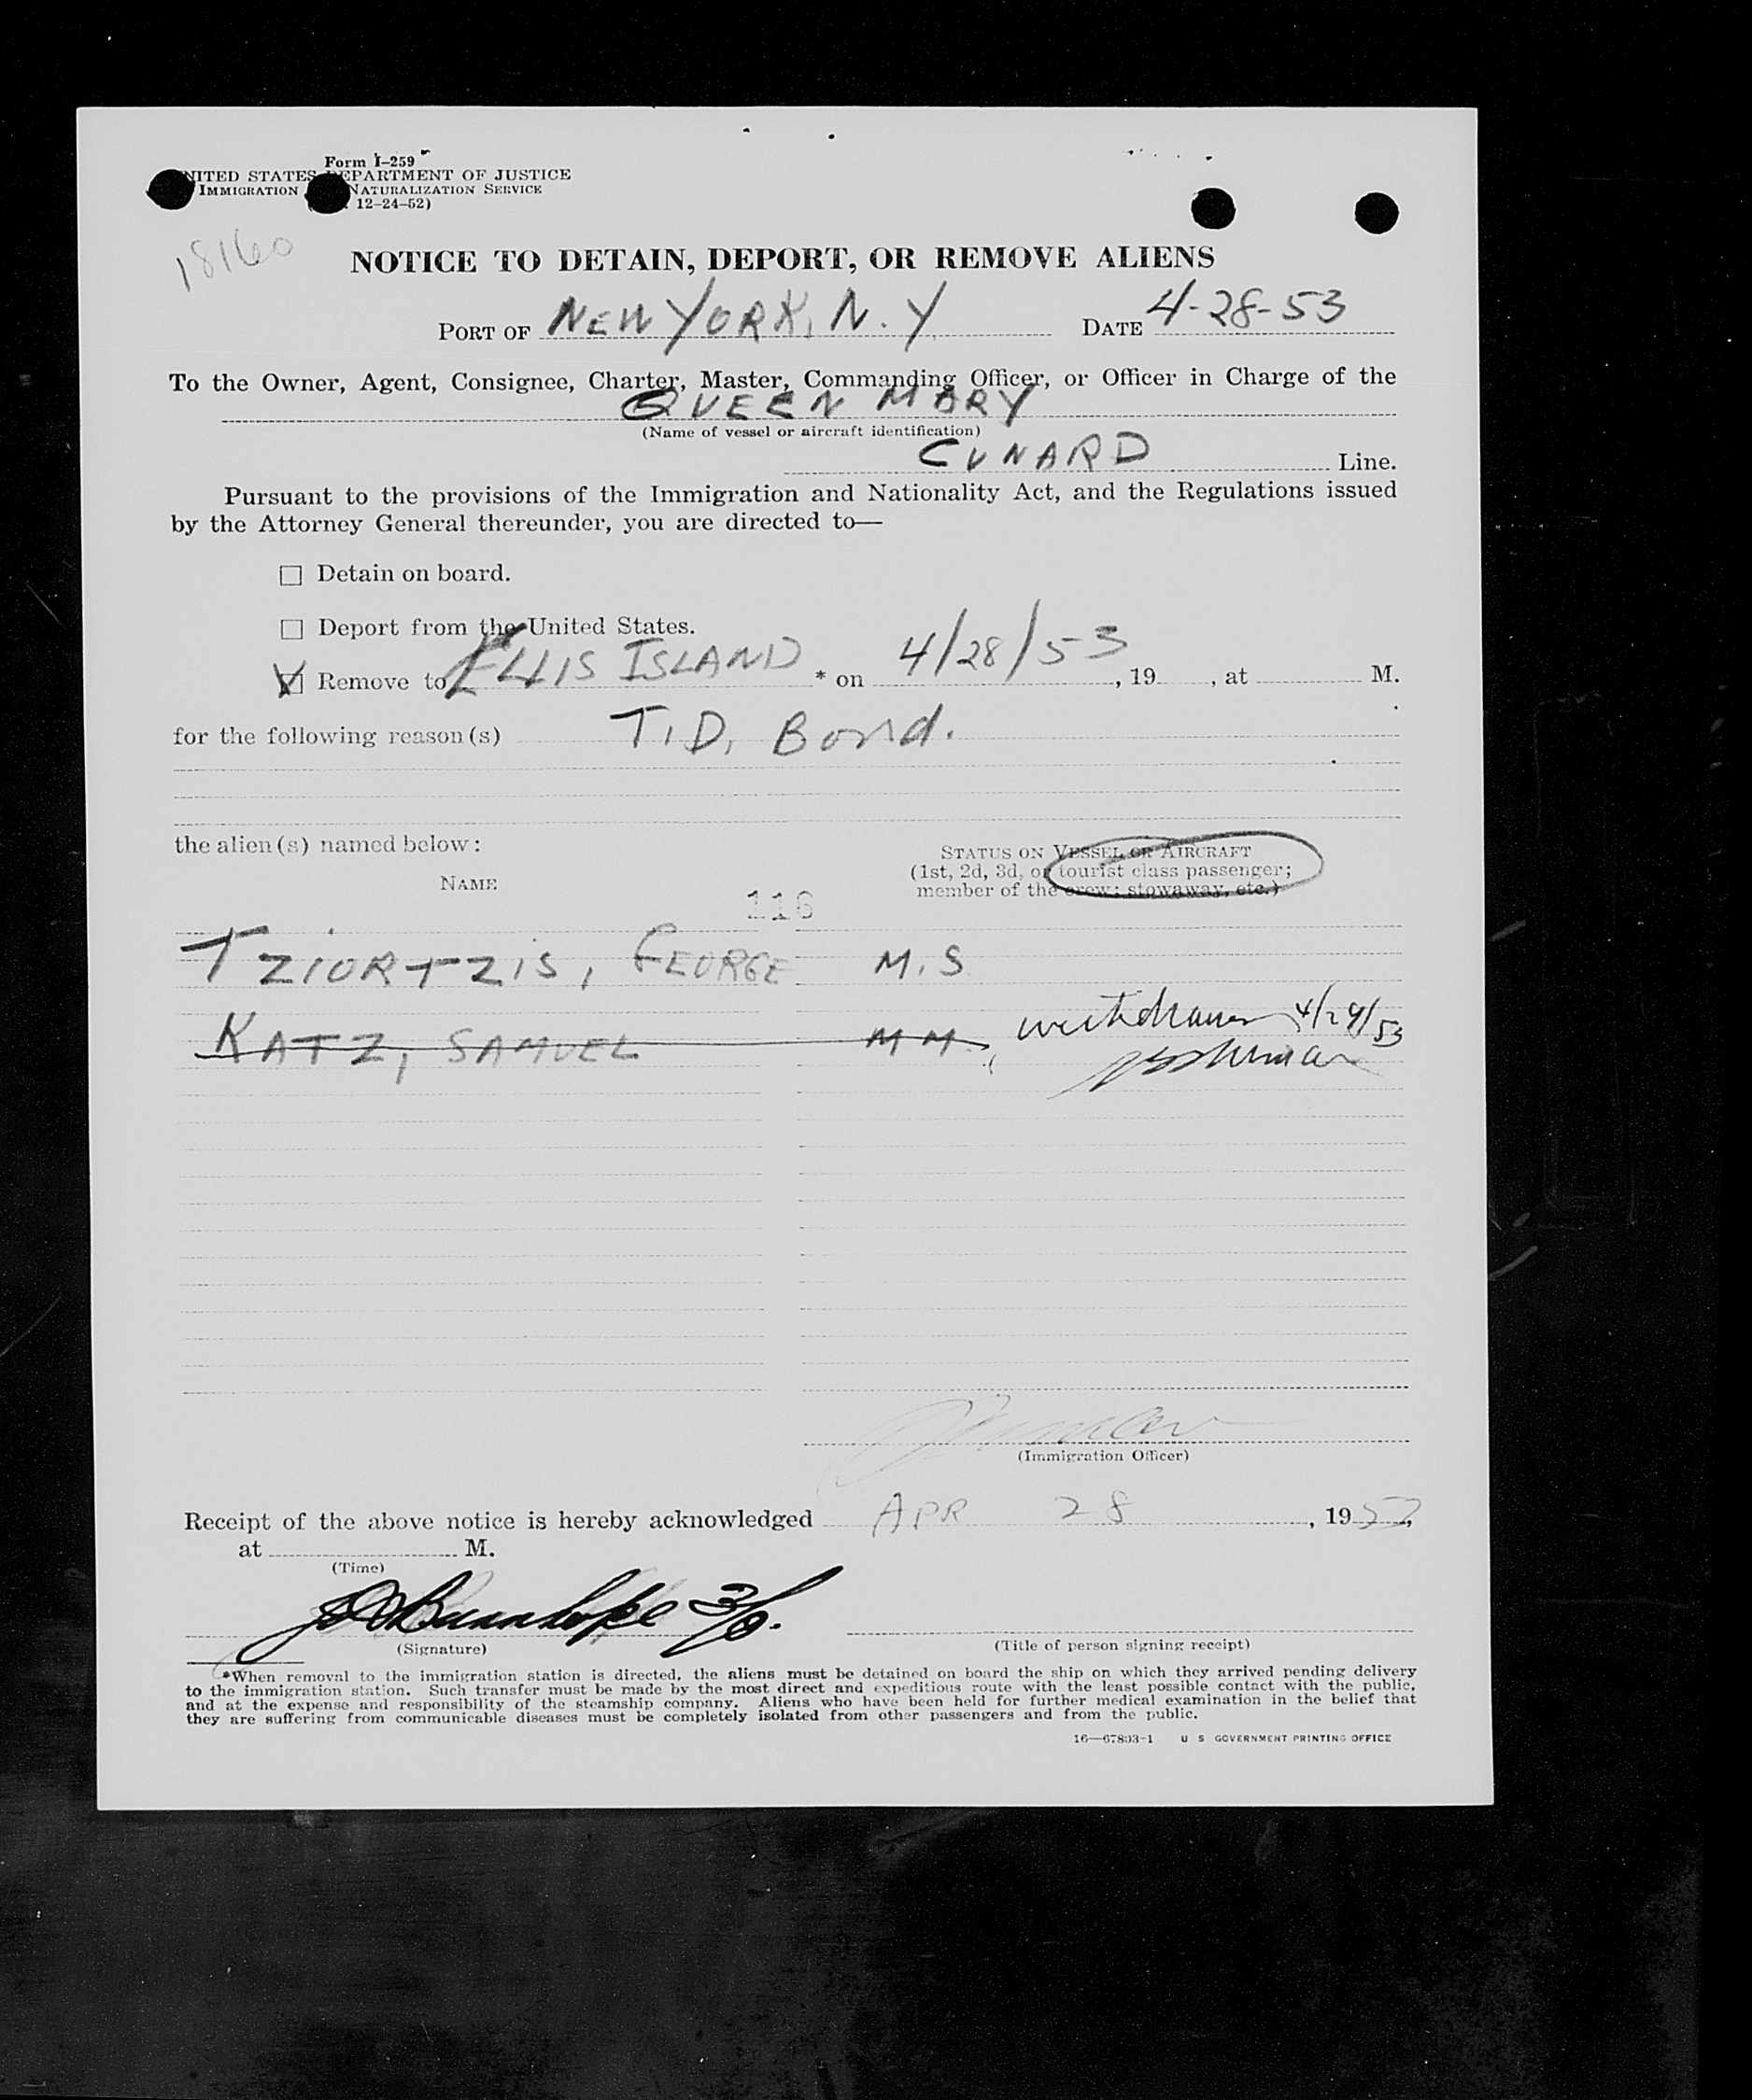 Form I-259
UNITED STATES DEPARTMENT OF JUSTICE
IMMIGRATION NATURALIZATION SERVICE
12-24-52)
18160
NOTICE TO DETAIN, DEPORT, OR REMOVE ALIENS
PORT OF NEW YORK, N.Y. DATE 4-28-53
To the Owner, Agent, Consignee, Charter, Master, Commanding Officer, or Officer in Charge of the
QUEEN MARY
(Name of vessel or aircraft identification)
CUNARD Line.
Pursuant to the provisions of the Immigration and Nationality Act, and the Regulations issued
by the Attorney General thereunder, you are directed to—
Detain on board.
Deport from the United States.
Remove to ELLIS ISLAND * on 4/28/53, 19 , at M.
for the following reason(s) T.D. Bond.
the alien(s) named below:
STATUS ON VESSEL OR AIRCRAFT
(1st, 2d, 3d, or tourist class passenger;
member of the crew; stowaway, etc.)
NAME
116
TZIORTZIS, GEORGE M.S
KATZ, SAMUEL M M. withdrawn 4/29/53
(Immigration Officer)
Receipt of the above notice is hereby acknowledged APR 28, 1953,
at M.
(Time)
(Signature)
(Title of person signing receipt)
*When removal to the immigration station is directed, the aliens must be detained on board the ship on which they arrived pending delivery
to the immigration station. Such transfer must be made by the most direct and expeditious route with the least possible contact with the public,
and at the expense and responsibility of the steamship company. Aliens who have been held for further medical examination in the belief that
they are suffering from communicable diseases must be completely isolated from other passengers and from the public.
16—67803-1 U S GOVERNMENT PRINTING OFFICE